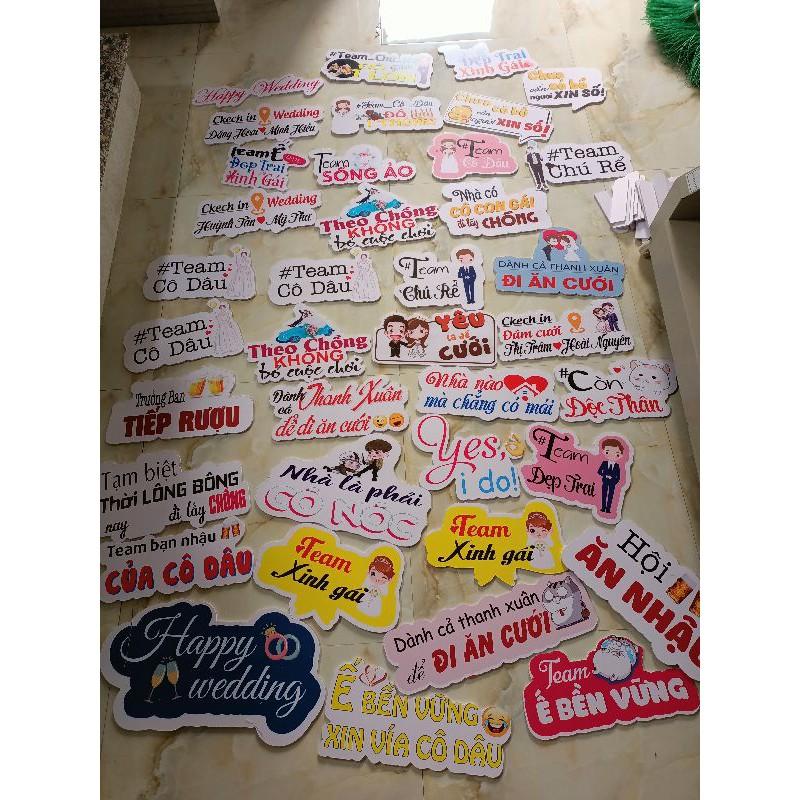 #Team Chú
Đẹp Trai
Xinh Gái
Happy Wedding
Chưa
có bồ
người XIN SỐ!
Ckech in Wedding
Đăng Hoài Minh Hiếu
#Team Cô Dâu
Chưa có bồ
XIN SỐ!
TeamẾ
Đẹp Trai
Xinh Gái
Team
SỐNG ẢO
#Team
Cô Dâu
#Team
Chú Rể
Ckech in Wedding
Huỳnh Tân Mỹ Thư
Theo Chồng
KHÔNG
bỏ cuộc chơi
Nhà có
CÔ CON GÁI
đi lấy CHỒNG
#Team
Cô Dâu
#Team
Cô Dâu
#Team
Chú Rể
DÀNH CẢ THANH XUÂN
ĐI ĂN CƯỚI
#Team
Cô Dâu
Theo Chồng
KHÔNG
bỏ cuộc chơi
YÊU
là để
CƯỚI
Ckech in
Đám cưới
Thị Trâm Hoài Nguyên
Trưởng Ban
TIẾP RƯỢU
Dành cả Thanh Xuân
để đi ăn cưới
Nhà nào
mà chẳng có mái
#Còn
Độc Thân
Tạm biệt
Thời LÔNG BÔNG
nay đi lấy CHỒNG
Nhà là phải
CÓ NÓC
Yes,
i do!
#Team
Đẹp Trai
Team bạn nhậu
CỦA CÔ DÂU
Team
Xinh gái
Team
Xinh gái
Hội
ĂN NHẬU
Happy
wedding
Dành cả thanh xuân
để ĐI ĂN CƯỚI
Ế BỀN VỮNG
XIN VÍA CÔ DÂU
Team
Ế BỀN VỮNG